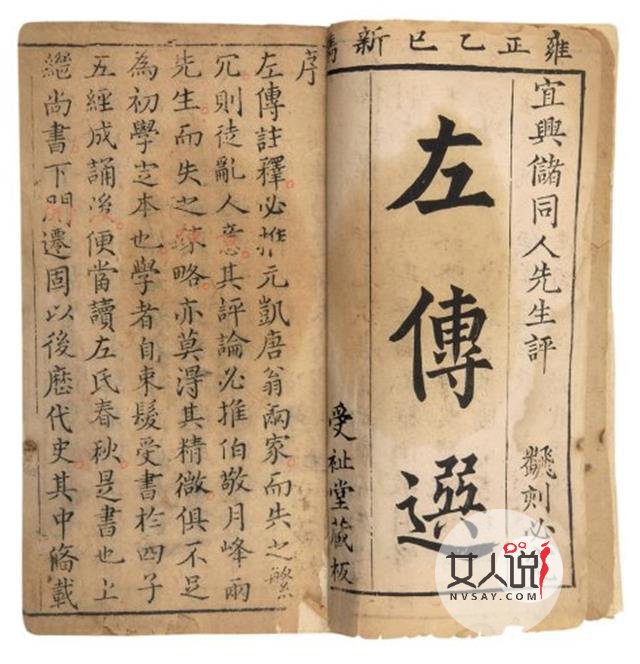 雍正乙巳新
宜興儲同人先生評
飜刻必
左傳選
受祉堂藏板
序
左傳註釋必推元凱唐翁兩家而失之繁
冗則徒亂人意其評論必推伯敬月峰兩
先生而失之疎略亦莫得其精微俱不足
為初學㝎本也學者自束髮受書於四子
五經成誦後便當讀左氏春秋是書也上
繼尚書下開遷固以後歷代史其中俻載
女人说
NVSAY.COM